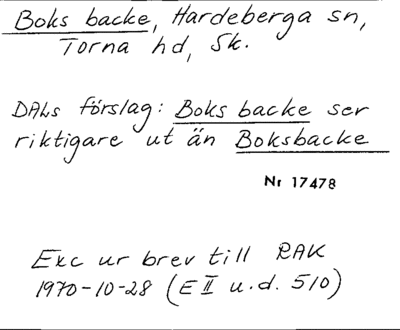 Boks backe, Hardeberga sn,
Torna hd, Sk.
DALs förslag: Boks backe ser
riktigare ut än Boksbacke
Nr 17478
Exc ur brev till RAK
1970-10-28 (E II u.d. 510)